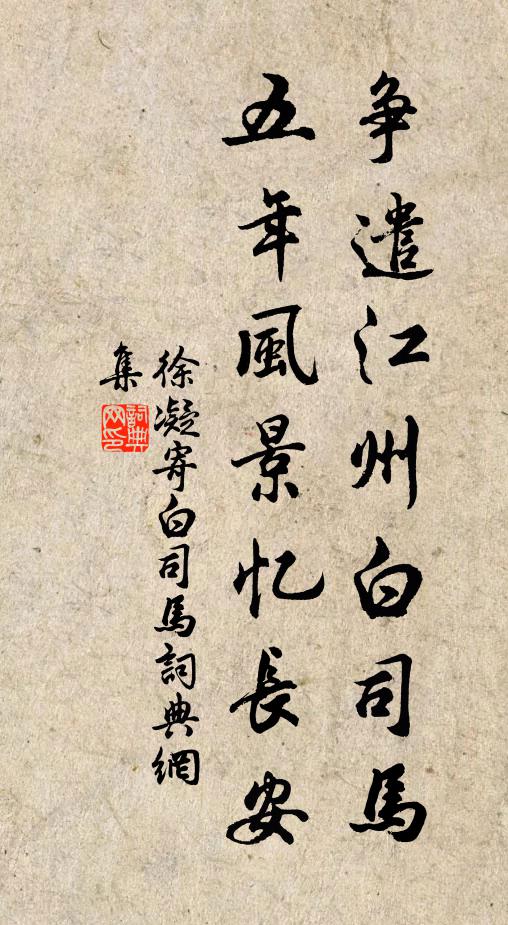 争遣江州白司馬
五年風景忆長安
徐凝寄白司馬詞典網
集
詞典
网印